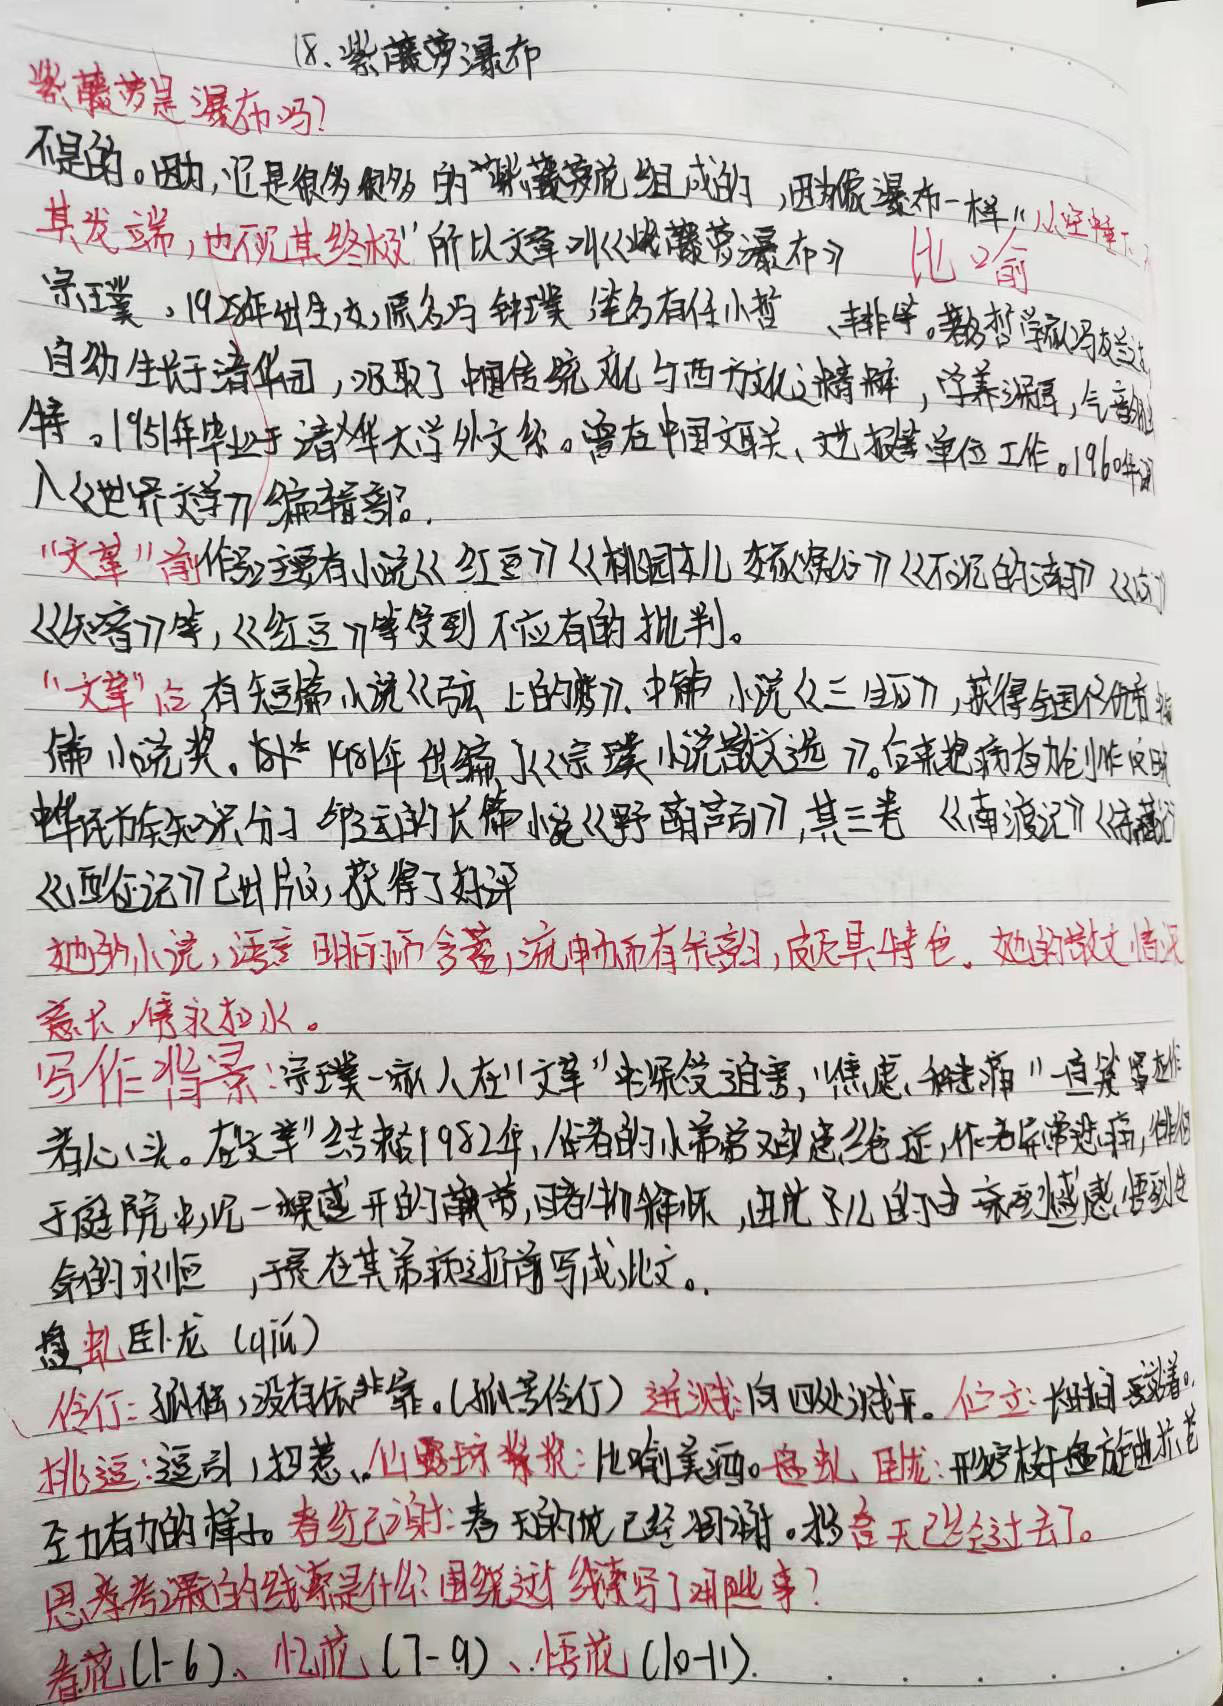 18、紫藤萝瀑布
紫藤萝是瀑布吗?
不是的。因为,它是很多很多的紫藤萝花组成的,因为像瀑布一样,"从空垂下,
其发端,也不见其终极"所以文章叫《紫藤萝瀑布》 比喻
宗璞,1928年出生,女,原名冯钟璞 笔名有任小哲、丰非等。著名哲学家冯友兰之
自幼生长于清华园,汲取了中国传统文化与西方文化之精粹,学养深厚,气韵独
特。1951年毕业于清华大学外文系。曾在中国文联、文艺报等单位工作。1960年调
入《世界文学》编辑部。
"文革"前作品主要有小说《红豆》《桃园女儿嫁窝谷》《不沉的湖》
《知音》等,《红豆》等受到不应有的批判。
"文革"后有短篇小说《弦上的梦》、中篇小说《三生石》,获得全国优秀中
篇小说奖。 1981年出编了《宗璞小说散文选》。后来抱病 力创作反映
中华民族知识分子命运的长篇小说《野葫芦引》,其三卷《南渡记》《东藏记》
《西征记》已出版,获得了好评
她的小说,语言明丽而含蓄,流畅而有余韵,颇具特色。她的散文情深
意长,隽永如水。
写作背景:宗璞一家人在"文革"中深受迫害,"焦虑、和悲痛"一直笼罩在作
者心头。在"文革"结束后1982年,作者的小弟弟又身患绝症,作者异常悲痛,徘徊
于庭院中,见一棵盛开的藤萝,睹物释怀,由此 的由衰到盛,感悟到生
命的永恒,于是在其弟病逝前写成此文。
盘虬卧龙(qiú)
伶仃:孤独,没有依靠。(孤苦伶仃) 迸溅:向四处溅开。伫立:长时间站着。
挑逗:逗引,招惹、仙露琼浆:比喻美酒。盘虬卧龙:形容枝干盘旋曲折苍
至力有力的样子。春红已谢:春天的花已经凋谢。指春天已经过去了。
思考 课的线索是什么?围绕这个线索写了哪些事?
看花(1-6)、忆花(7-9)、悟花(10-11).